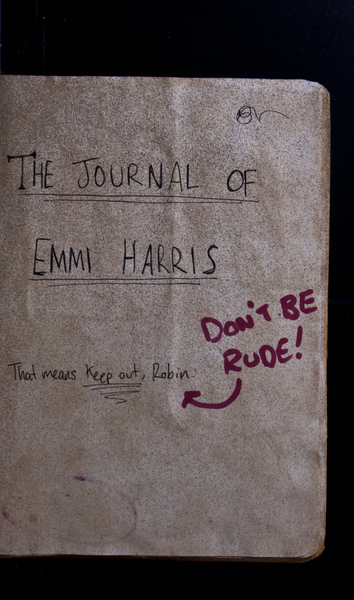 THE JOURNAL OF
EMMI HARRIS
DON'T BE
RUDE!
That means Keep out, Robin.